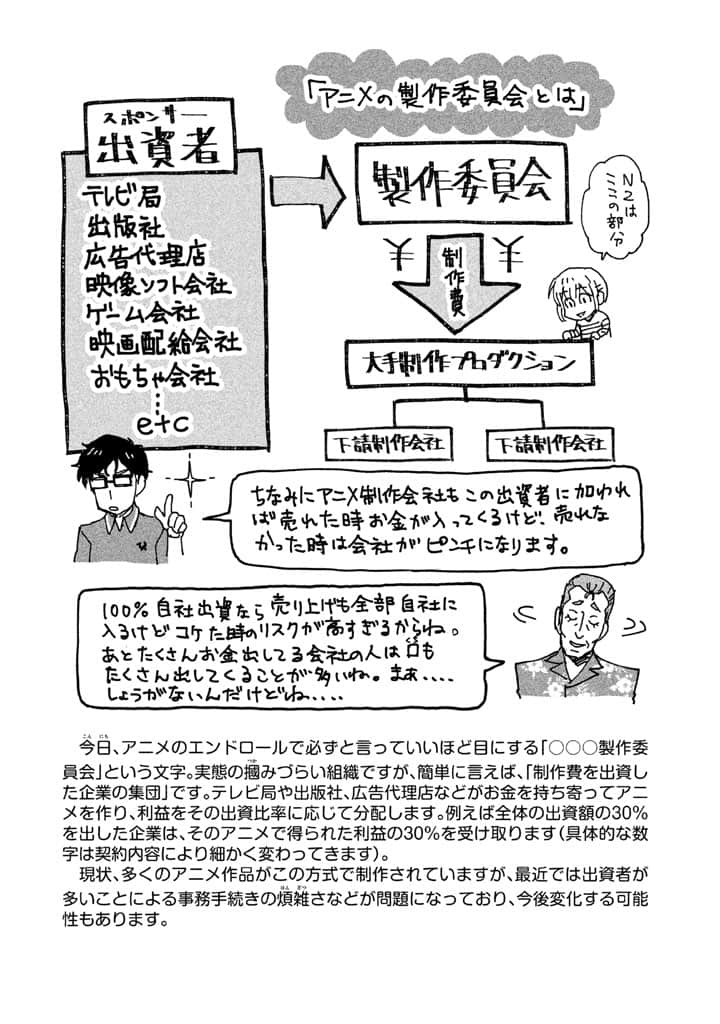 「アニメの製作委員会とは」
スポンサー
出資者
テレビ局
出版社
広告代理店
映像ソフト会社
ゲーム会社
映画配給会社
おもちゃ会社
⋮
etc
製作委員会
N2は
ここの部分
¥ 制作費 ¥
大手制作プロダクション
下請制作会社 下請制作会社
ちなみにアニメ制作会社もこの出資者に加われ
ば売れた時お金が入ってくるけど、売れな
かった時は会社がピンチになります。
100%自社出資なら売り上げも全部自社に
入るけどコケた時のリスクが高すぎるからね。
あとたくさんお金出してる会社の人は口も
たくさん出してくることが多いね。まぁ....
しょうがないんだけどね....
今日、アニメのエンドロールで必ずと言っていいほど目にする「○○○製作委
員会」という文字。実態の摑みづらい組織ですが、簡単に言えば、「制作費を出資し
た企業の集団」です。テレビ局や出版社、広告代理店などがお金を持ち寄ってアニ
メを作り、利益をその出資比率に応じて分配します。例えば全体の出資額の30%
を出した企業は、そのアニメで得られた利益の30%を受け取ります（具体的な数
字は契約内容により細かく変わってきます）。
現状、多くのアニメ作品がこの方式で制作されていますが、最近では出資者が
多いことによる事務手続きの煩雑さなどが問題になっており、今後変化する可能
性もあります。